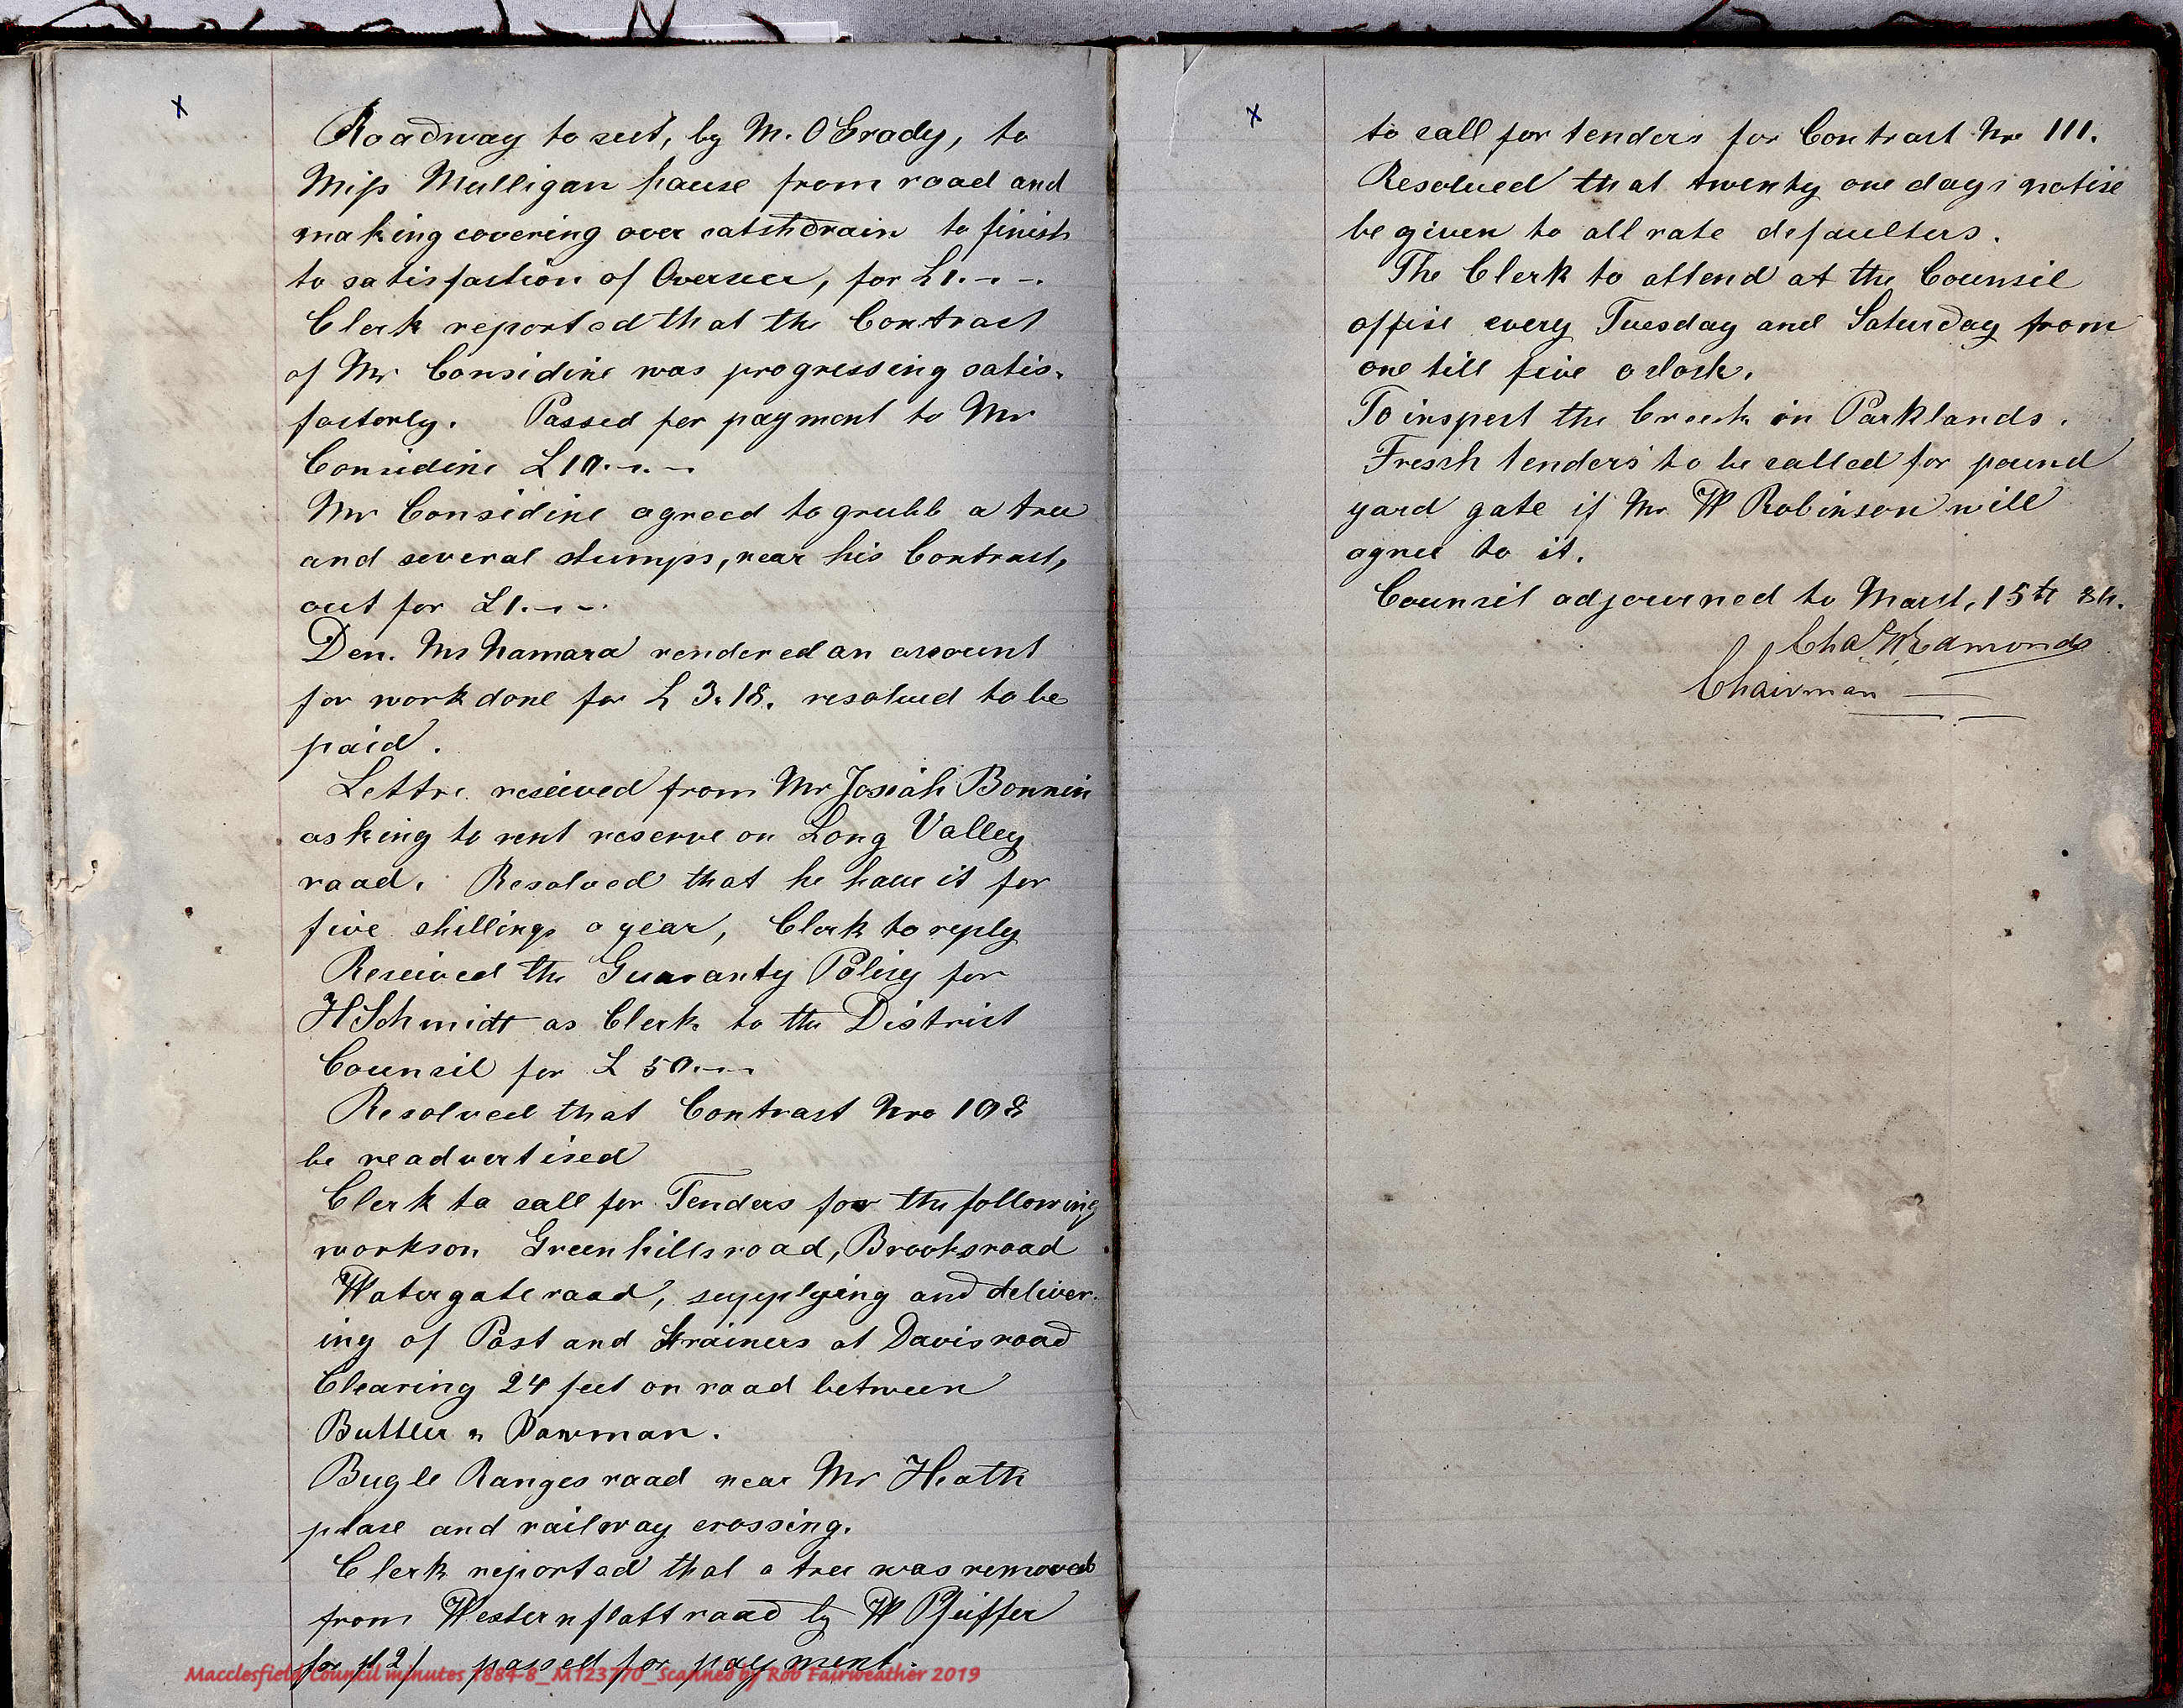 x
Roadway to cut, by M. O Grady, to
Miss Mulligan hause from road and
making covering over catchdrain to finish
to satisfaction of Overseer, for £1.-.-.
Clerk reported that the Contract
of Mr Considine was progressing satis-
factorly. Passed for payment to Mr
Considine £10.-.-
Mr Considine agreed to grubb a tree
and several stumps, near his Contract,
out for £1.-.-.
Den. Mc Namara rendered an account
for work done for £ 3.18. resolved to be
paid.
Lettre received from Mr Josiah Bonnin
asking to rent reserve on Long Valley
road. Resolved that he have it for
five shillings a year, Clerk to reply
Received the Guaranty Policy for
H Schmidt as Clerk to the District
Council for £ 50.-.-
Resolved that Contract Nro 108
be readvertised
Clerk to call for Tenders for the following
works on Greenhills road, Brooks road
Watergate road, supplying and deliver-
ing of Post and Strainers at Davis road
Clearing 24 feet on road between
Buttler & Bowman.
Bugle Ranges road near Mr Heath
place and railway crossing.
Clerk reported that a tree was removed
from Western flatt road by W Pfeiffer
for 2/ passed for payment.
Macclesfield Council minutes 1884-8_M123770_Scanned by Rob Fairweather 2019
x
to call for tenders for Contract Nr 111.
Resolved that twenty one days notice
be given to all rate defaulters.
The Clerk to attend at the Council
office every Tuesday and Saturday from
one till five o clock.
To inspect the Creek in Parklands.
Fresch tenders to be called for pound
yard gate if Mr W Robinson will
agree to it.
Council adjourned to March 15th 84.
Chas W Edmonds
Chairman